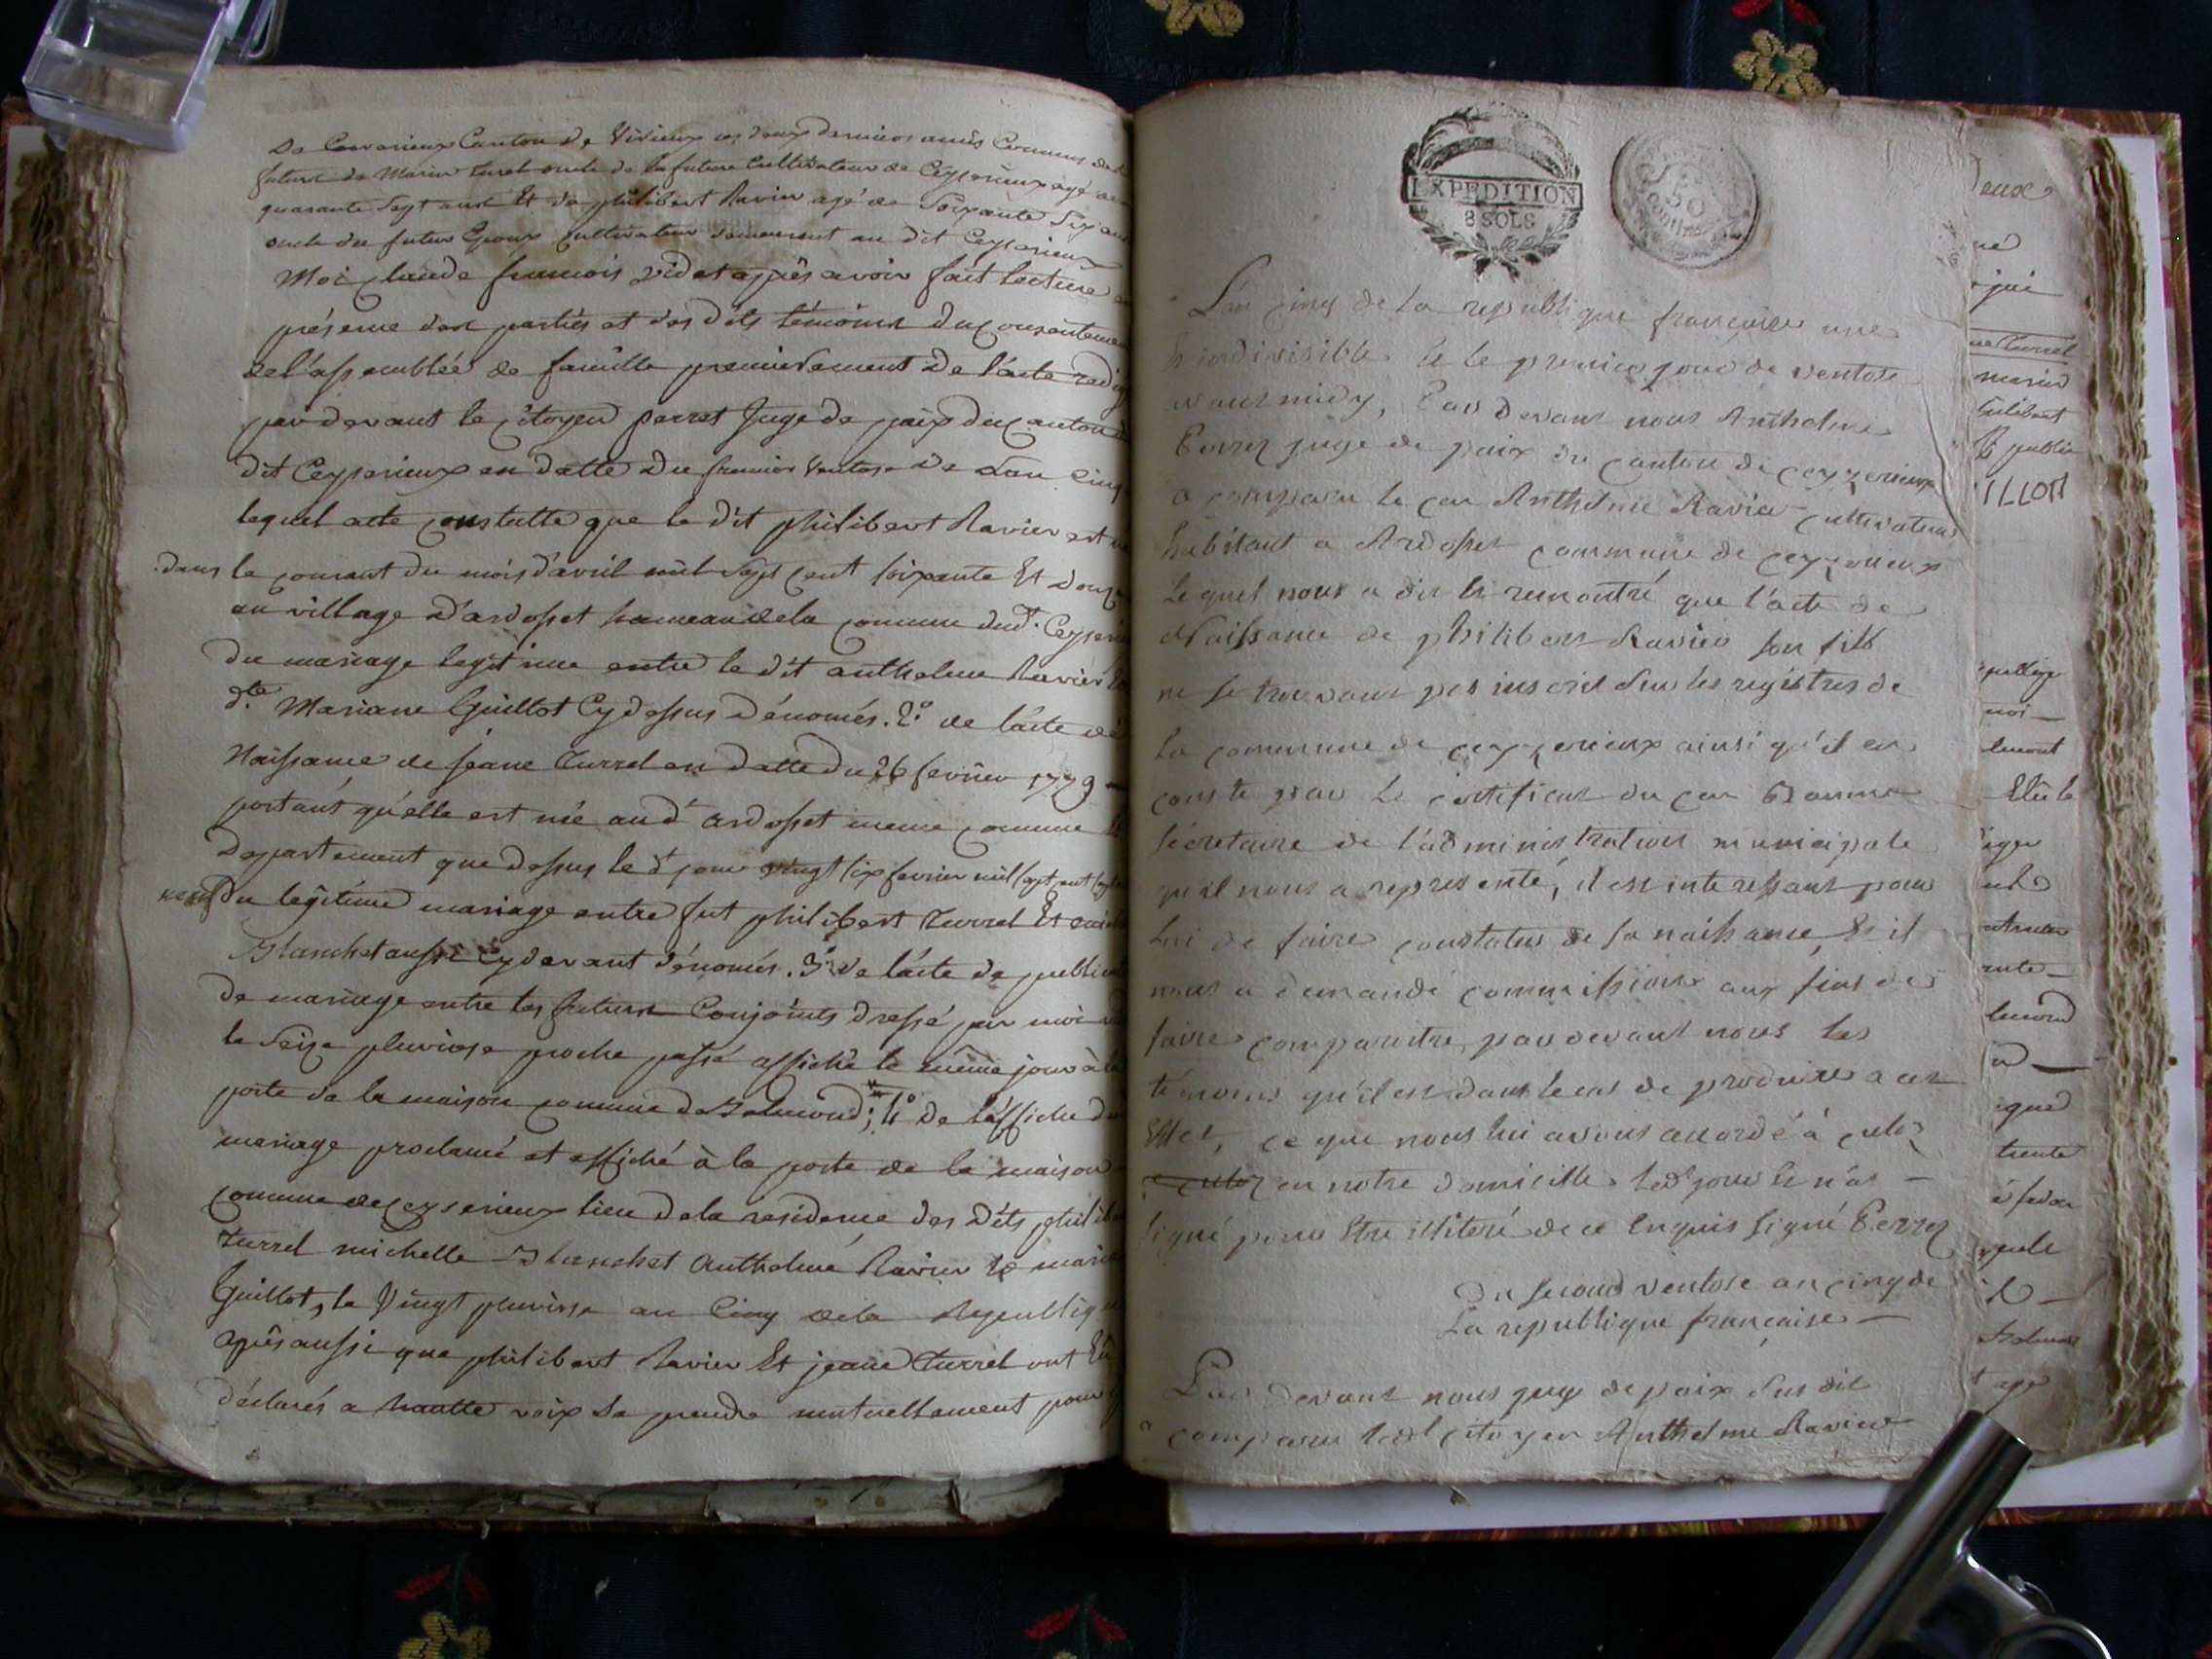 De Canton de Virieux ces deux derniers amis Communs
future de Marin turel oncle de la future Cultivateur de Ceyserieux agé de
quarante Sept ans Et de philibert Ravier agé de Soixante Six ans
oncle du futur Epoux cultivateur demeurant au dit Ceyserieux
Moi claude francois videt après avoir fait lecture en
présence des parties et des dits témoins du consentement
de l'assemblée de famille premierement De l'acte redigé
par devant le citoyen perret Juge de paix du canton
dit Ceyserieux en datte Du premier Ventose De L'an Cinq
lequel acte constatte que le dit philibert Ravier est
dans le courant du mois d'avril mil Sept cent soixante Et Douze
au village D'ardosset hameau de la comune dud.t Ceyserieux
Du mariage legitime entre le dit anthelme Ravier Et
d.te Mariane Guillot Cy dessus Dénomés. 2.° de l'acte de
Naissance de jeane Turrel en datte Du 26 fevrier 1779
portant qu'elle est née aud.t ardosset meme comune
Departement que dessus le d.t jour vingt six fevrier mil sept cent
neuf Du legitime mariage entre fut philibert Turrel Et
Blanchet aussi Cy devant dénomés. 3.° de l'acte de publication
De mariage entre les futurs Conjoints dressé par moi
le Seize pluviose proche passé affiché le même jour à la
porte de la maison comune de Belmond; 4.° De l'affiche du
mariage proclamé et affiché à la porte de la maison
comune de ceyserieux lieu de la residence des Dits philibert
Turrel michelle Blanchet anthelme Ravier Et marie
Guillot, le Vingt pluviose an Cinq de la Republique
après aussi que philibert Ravier Et jeane Turrel ont Eü
déclarés a haulte voix Se prendre mutuellement pour
EXPEDITION
8 SOLS
50
L'an cinq de la republique francaise une
Et indivisible Et le premier jour de ventose
avant midy, Par devant nous Anthelme
Perret juge de paix du canton de ceyzerieux
a comparu le cen Anthelme Ravier cultivateur
habitant a Ardosset commune de ceyzerieux
Lequel nous a dit Et remontré que l'acte de
Naissance de philibert Ravier son fils
ne se trouvant pas inscrit sur les registres de
la commune de ceyzerieux ainsi qu'il en
conste par le certificat du cen
sécretaire de l'administration municipale
qu'il nous a representé, il est interessant pour
lui de faire constater de sa naissance, Et il
nous a demandé commission aux fins de
faire comparoitre pardevant nous les
témoins qu'il est dans le cas de produire a cet
Effet, ce que nous lui avons accordé à
en notre domicille led.t jour Et n'as
signé pour Etre illiteré de ce Enquis signé Perret
Du second ventose an cinq de
La republique française
Par devant nous juge de paix sus dit
a comparu led.t citoyen Anthelme Ravier
marin
publié
ILLON
Elü le
trente